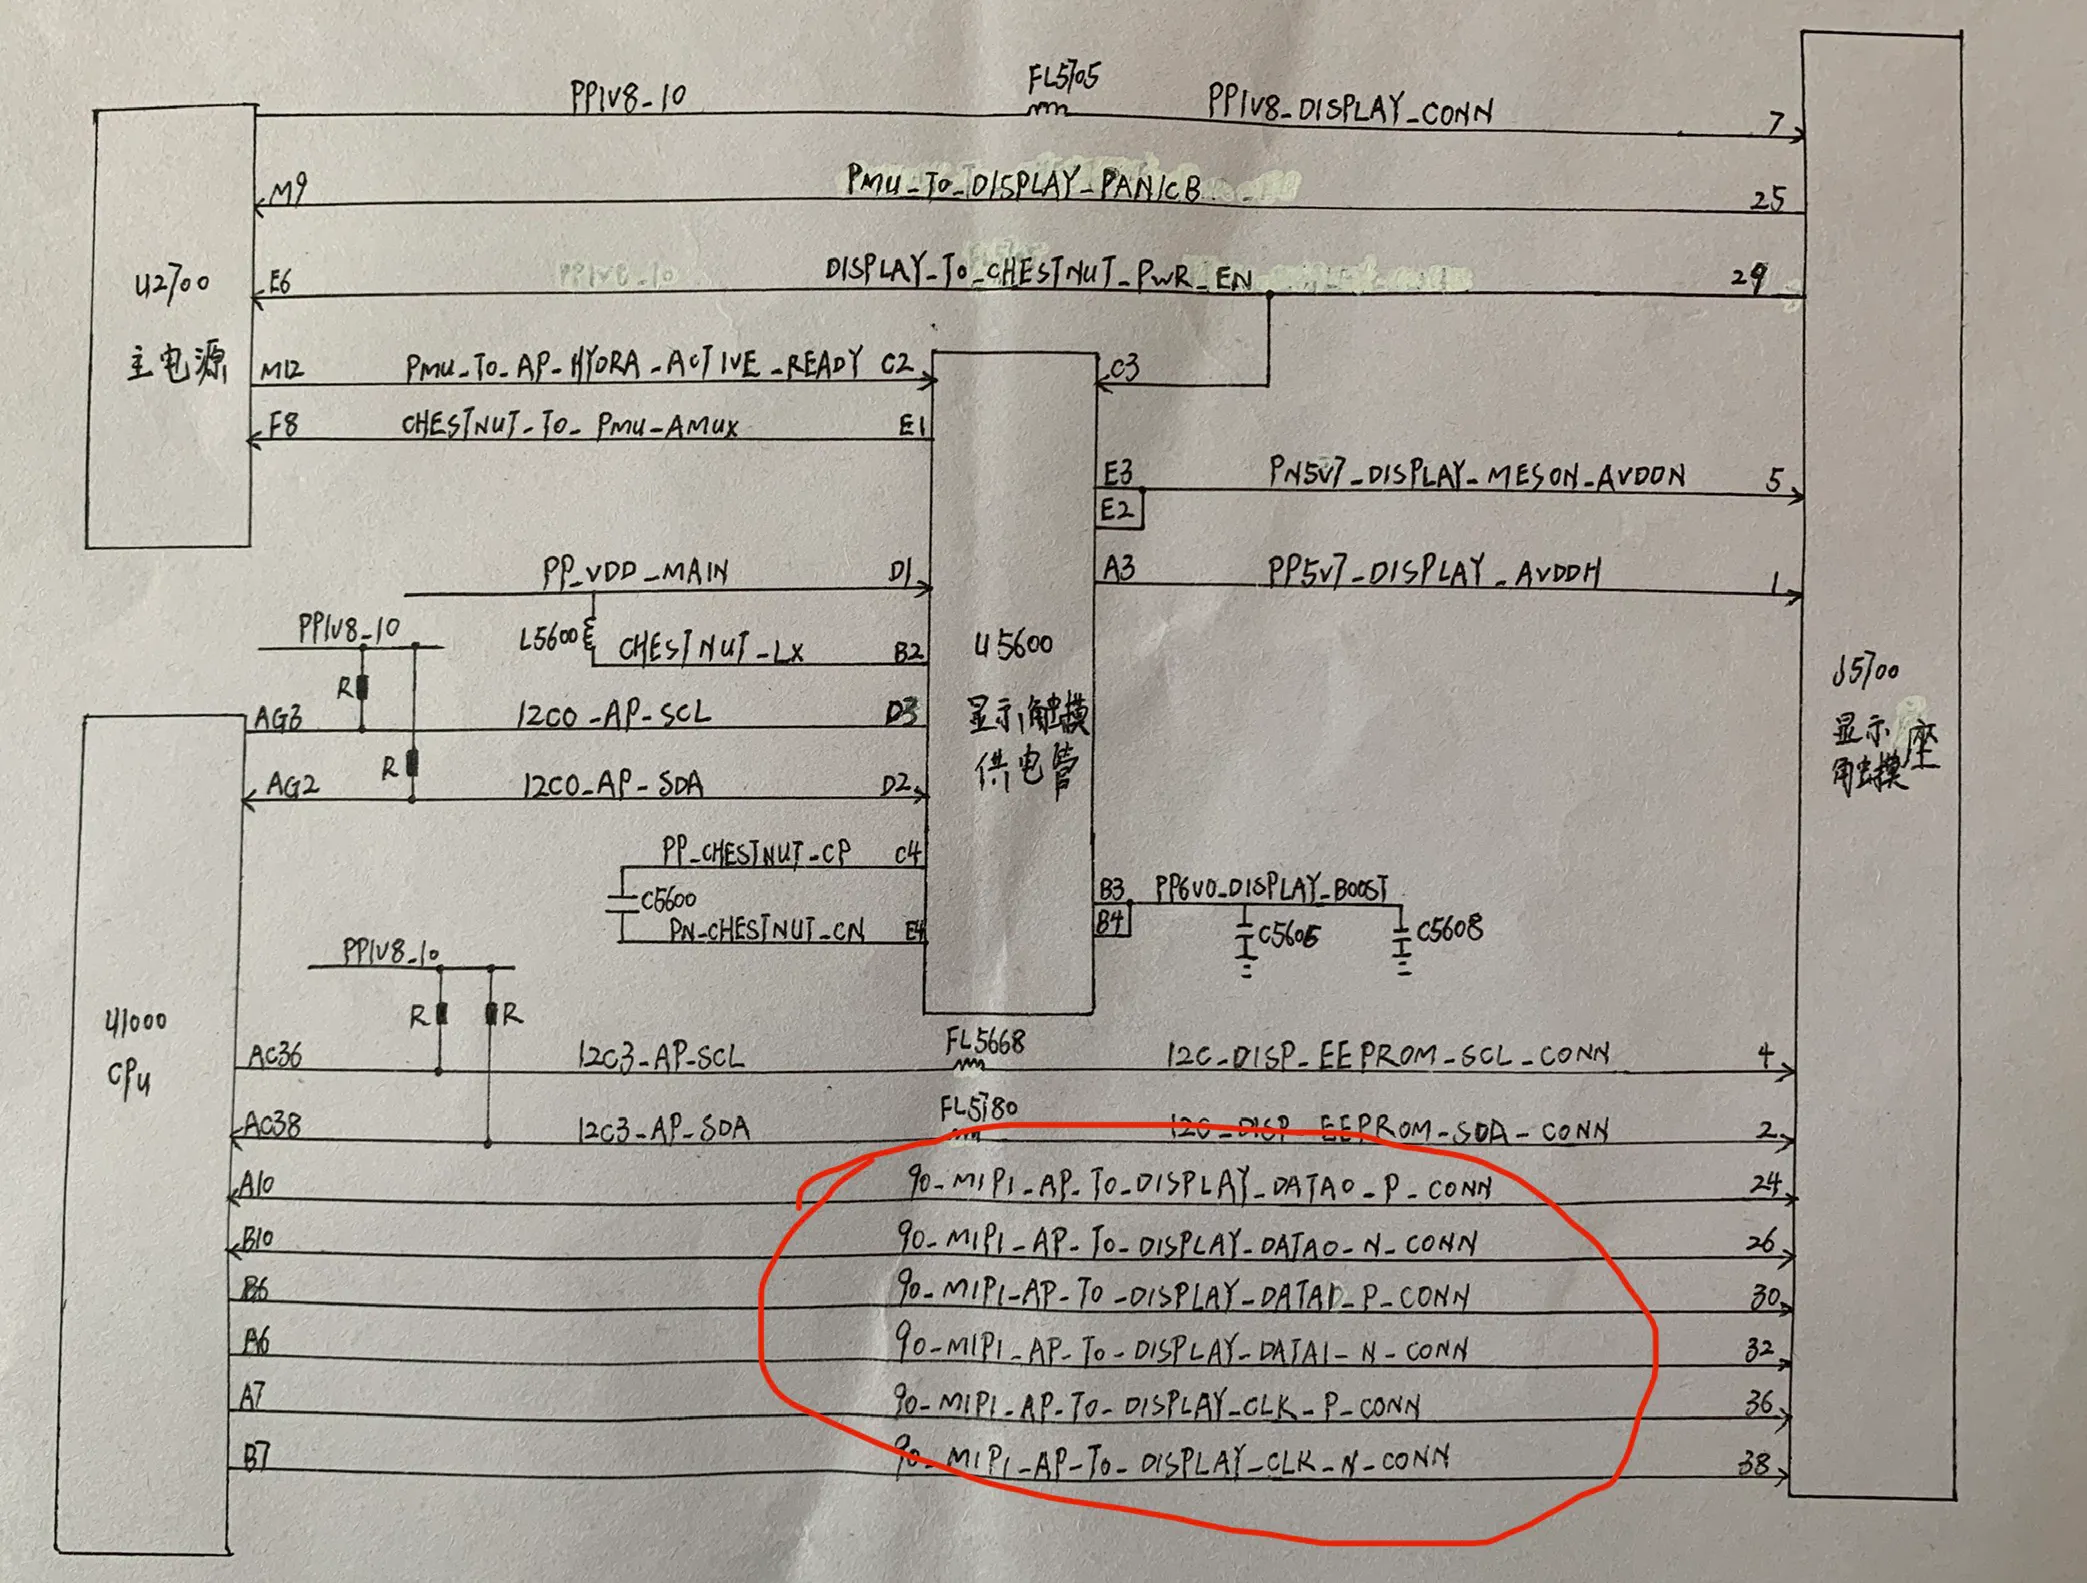 PP1V8_10 FL5705 PP1V8_DISPLAY_CONN 7
M9 PMU_TO_DISPLAY_PANICB 25
E6 DISPLAY_TO_CHESTNUT_PWR_EN 29
U2700
主电源
M12 PMU_TO_AP_HYDRA_ACTIVE_READY C2 C3
F8 CHESTNUT_TO_PMU_AMUX E1
E3 PN5V7_DISPLAY_MESON_AVDDN 5
E2
PP_VDD_MAIN D1 A3 PP5V7_DISPLAY_AVDDH 1
PP1V8_10 L5600 CHESTNUT_LX B2
R
AG3 I2C0_AP_SCL D3
R
AG2 I2C0_AP_SDA D2
U5600
显示,触摸
供电管
J5700
显示
触摸座
PP_CHESTNUT_CP C4
C5600
PN_CHESTNUT_CN E4
B3 PP6V0_DISPLAY_BOOST
B4 C5605 C5608
PP1V8_10
R R
U1000
CPU
AC36 I2C3_AP_SCL FL5668 I2C_DISP_EEPROM_SCL_CONN 4
AC38 I2C3_AP_SDA FL5780 I2C_DISP_EEPROM_SDA_CONN 2
A10 90_MIPI_AP_TO_DISPLAY_DATA0_P_CONN 24
B10 90_MIPI_AP_TO_DISPLAY_DATA0_N_CONN 26
B6 90_MIPI_AP_TO_DISPLAY_DATA1_P_CONN 30
A6 90_MIPI_AP_TO_DISPLAY_DATA1_N_CONN 32
A7 90_MIPI_AP_TO_DISPLAY_CLK_P_CONN 36
B7 90_MIPI_AP_TO_DISPLAY_CLK_N_CONN 38